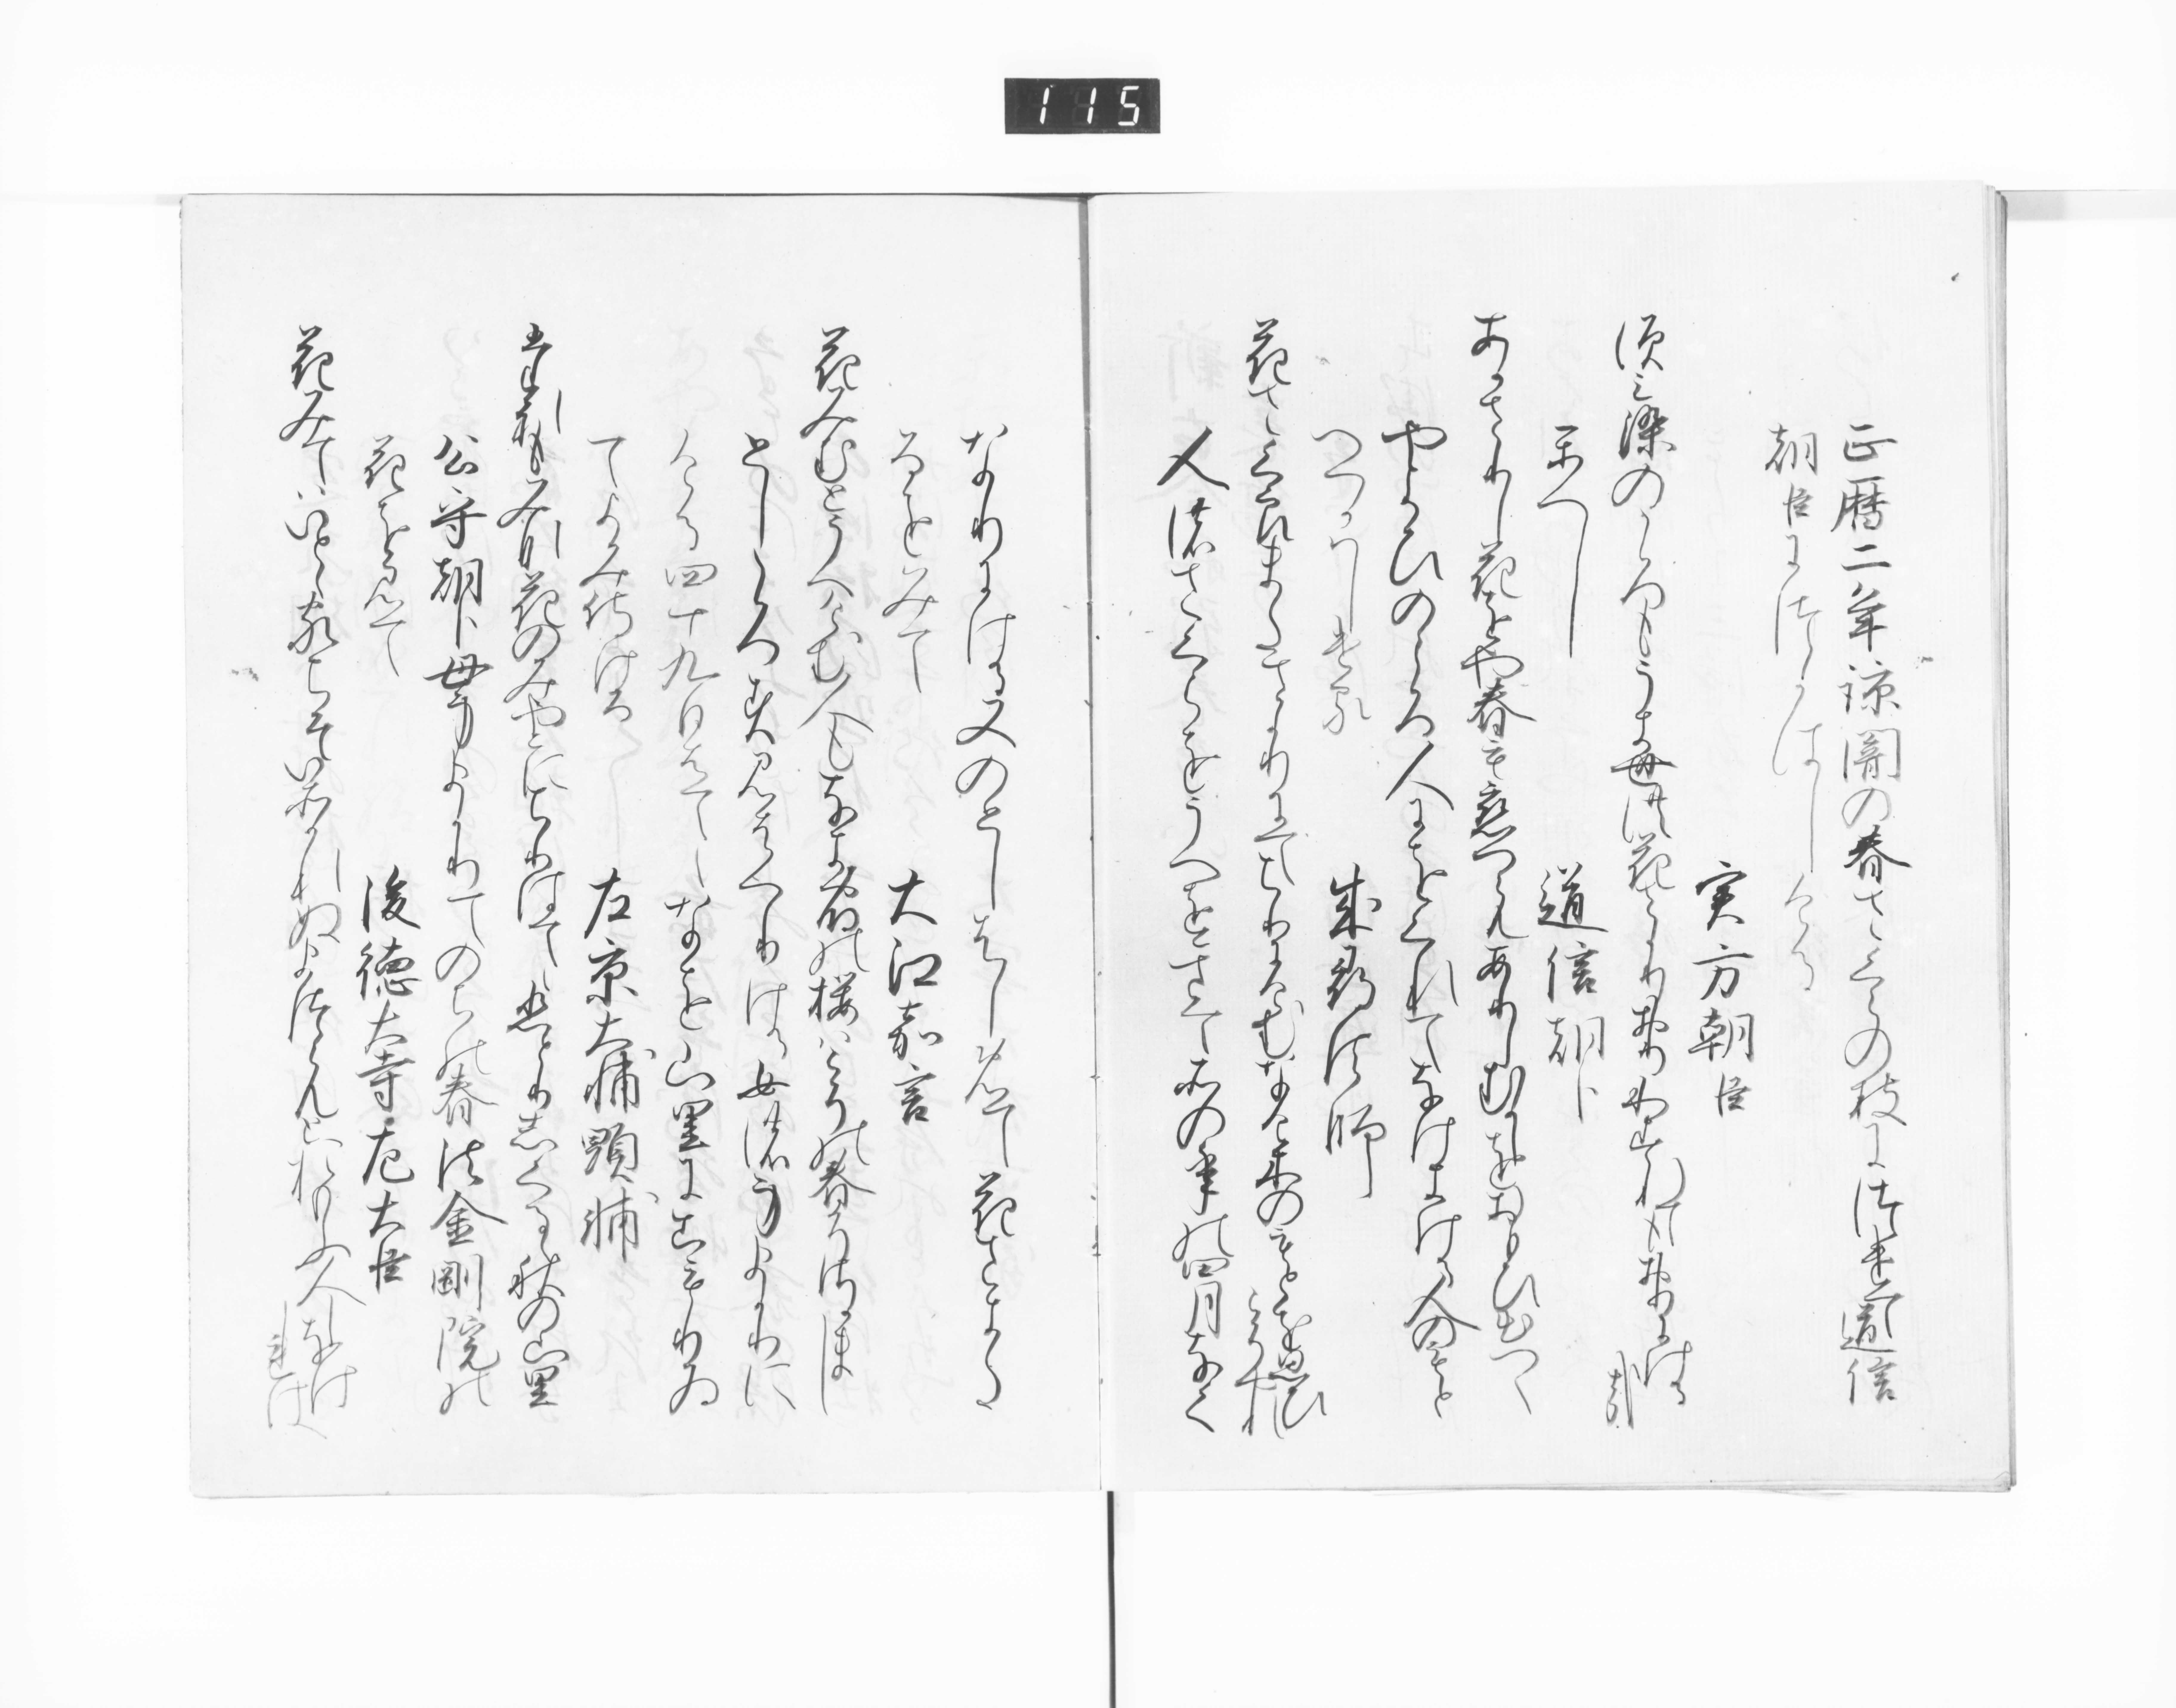 115
正暦二年諒闇の春さくらの枝につけて道信
朝臣につかはしける
実方朝臣
須み染のころもうき世の花さかりおりわすれてもおりてける哉
返し
道信朝臣
あかさりし花をや春も恋つらんありしむかしをおもひいてつゝ
やよひのころ人にをくれてなけきける人のもと
へつかはしける
成尋法師
花さくらまたさかりにてちりにけむなけきのもとを思ひこそやれ
人のさくらをうへをきてその年の四月なく
なりにける又のとしはしめて花さきた
るをみて
大江嘉言
花みむとうへけむ人もなき宿の桜はこその春そさかまし
としころすみ侍ける女の身まかりに
ける四十九日はてゝなを山里にこもりゐ
てよみ侍ける
左京大輔顕輔
たれもみな花のみやこにちりはてゝひとりしくるゝ秋の山里
公守朝臣母身まかりてのちの春法金剛院の
花を見て
後徳大寺左大臣
花みてはいとゝ家ちそいそかれぬまつらんと思ふ人しなければ